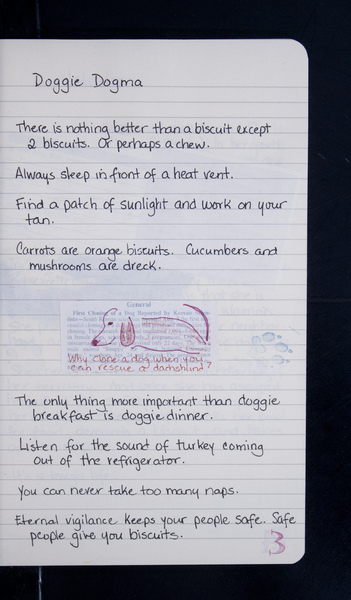 Doggie Dogma
There is nothing better than a biscuit except
2 biscuits. Or perhaps a chew.
Always sleep in front of a heat vent.
Find a patch of sunlight and work on your
tan.
Carrots are orange biscuits. Cucumbers and
mushrooms are dreck.
General
First Cloning of a Dog Reported by Korean
Why clone a dog when you
can rescue a dachshund?
The only thing more important than doggie
breakfast is doggie dinner.
Listen for the sound of turkey coming
out of the refrigerator.
You can never take too many naps.
Eternal vigilance keeps your people safe. Safe
people give you biscuits.
3